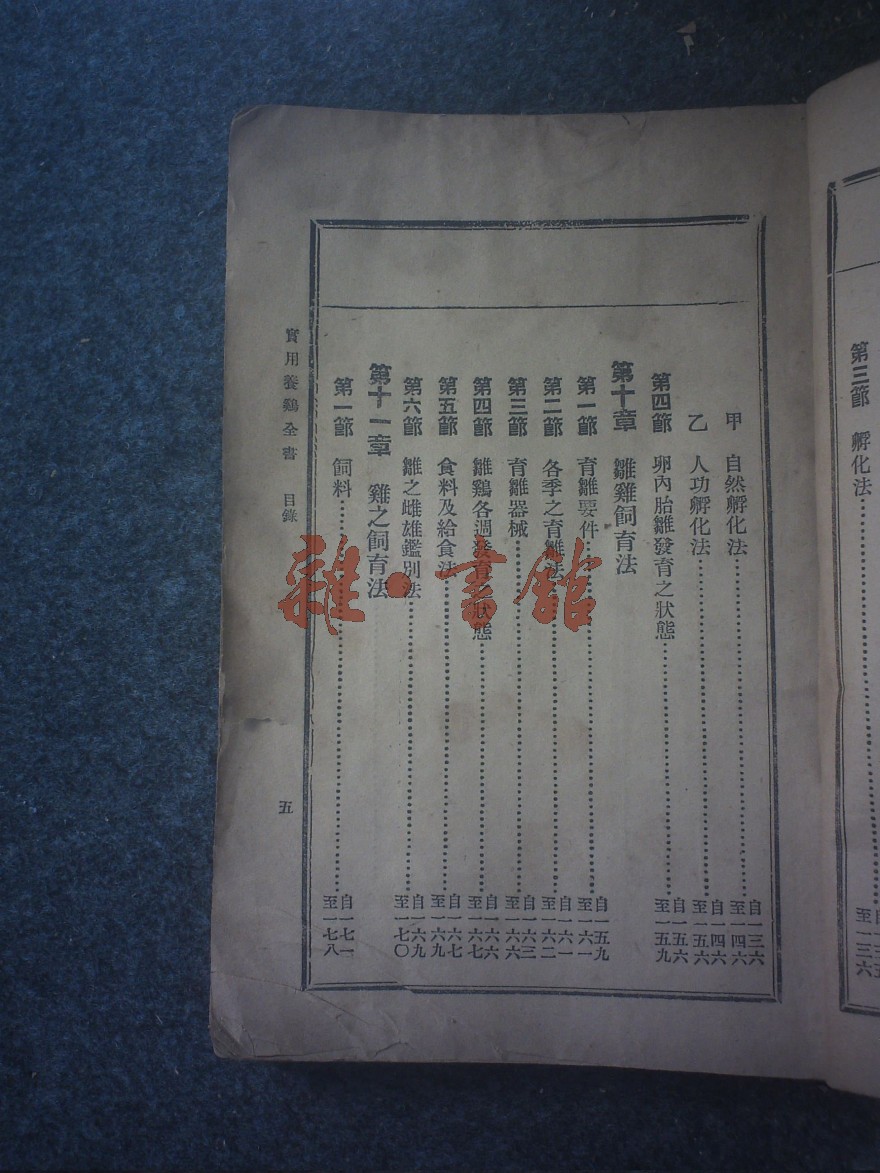 第三節　孵化法
甲　自然孵化法 自一三六 至一四六
乙　人功孵化法 自一四六 至一五六
第四節　卵內胎雛發育之狀態 自一五六 至一五九
第十章　雛雞飼育法
第一節　育雛要件 自一五九 至一六一
第二節　各季之育雛法 自一六一 至一六二
第三節　育雛器械 自一六三 至一六六
第四節　雛鷄各週發育之狀態 自一六六 至一六七
第五節　食料及給食法 自一六七 至一六九
第六節　雛之雌雄鑑別法 自一六九 至一七〇
第十一章　雞之飼育法
第一節　飼料 自一七一 至一七八
實用養鷄全書　目錄
五
雜·書館